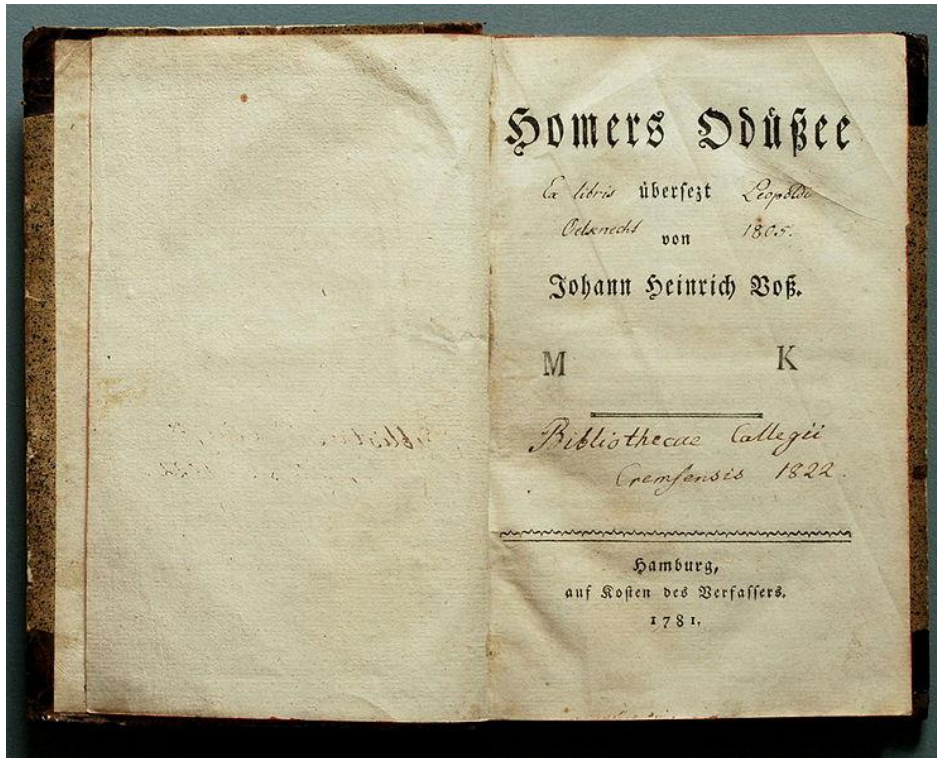 Homers Odüßee
Ex libris übersezt Leopoldi
von 1805.
Johann Heinrich Voß.
M K
Bibliothecae Collegii
Cremsensis 1822.
Hamburg,
auf Kosten des Verfassers.
1781.